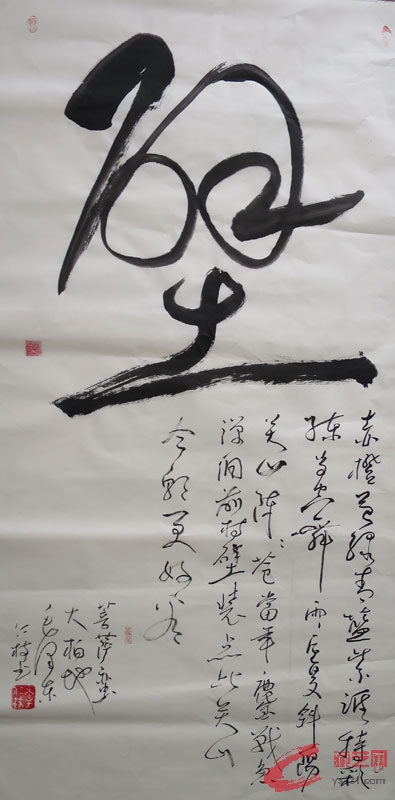 壁
赤橙黄绿青蓝紫谁持彩
练当空舞雨后复斜陽
关山阵〻苍當年鏖战急
弹洞前村壁装点此关山
今朝更好看
菩萨蛮
大柏地
毛泽东
书